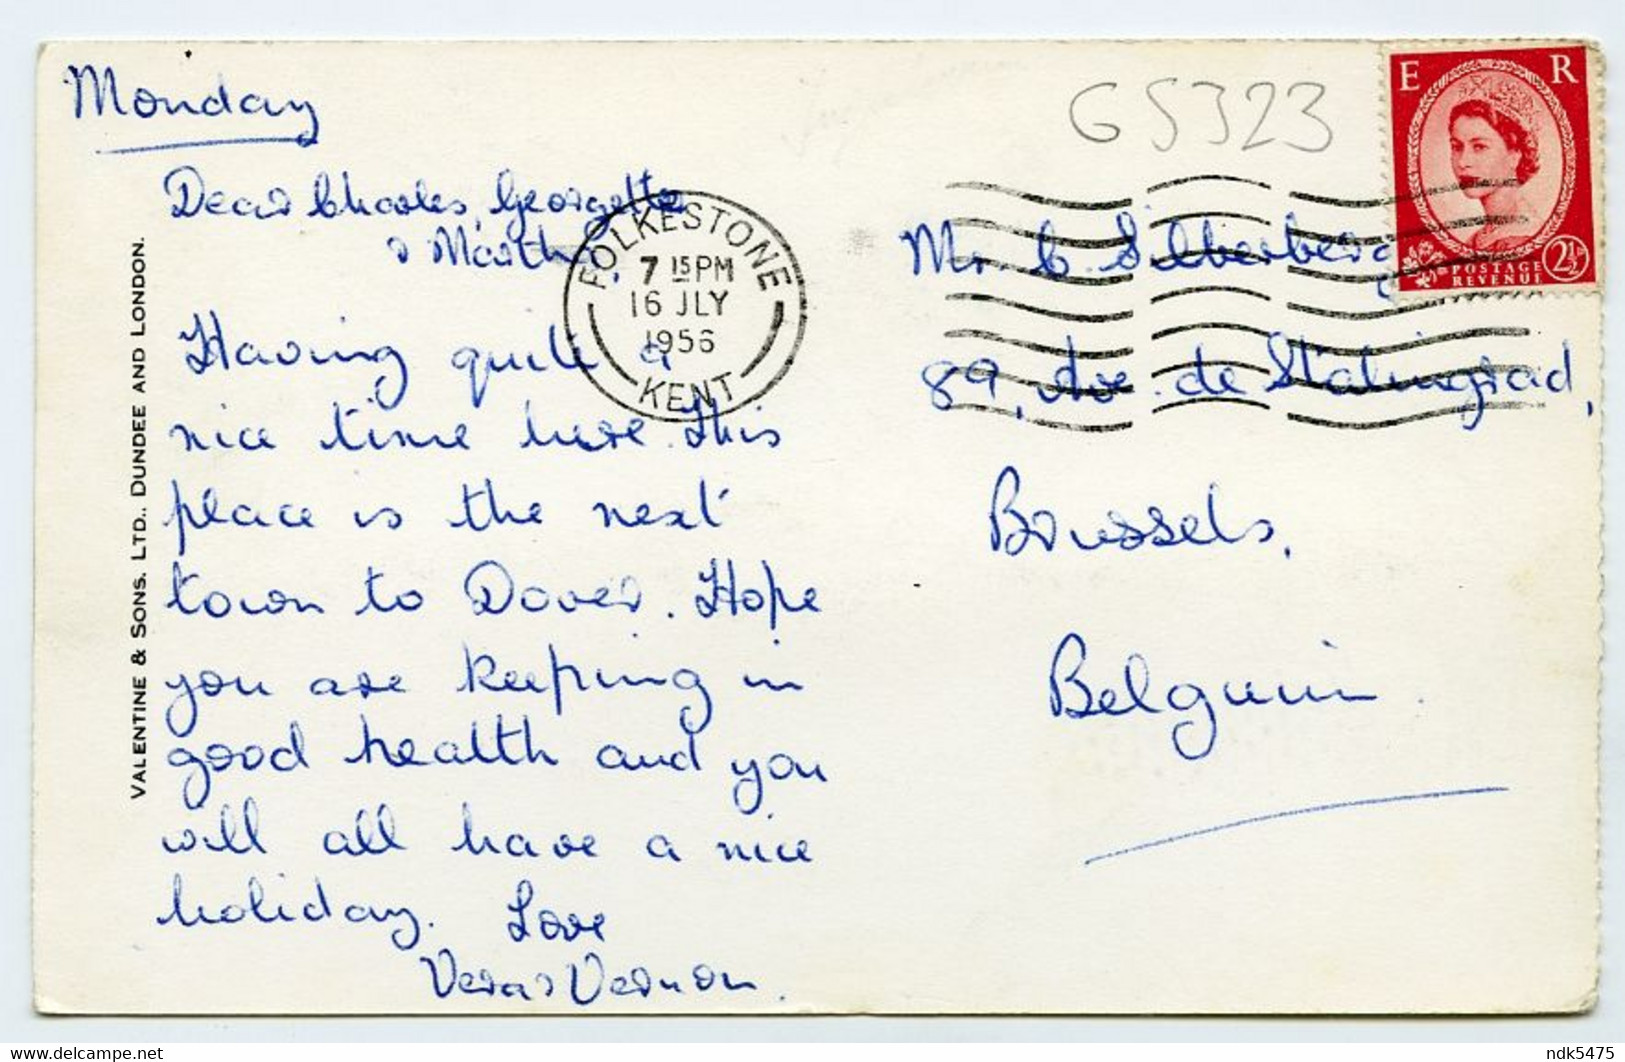 Monday
Dear Charles, Georgette
& Marth
Having quite a
nice time here. This
place is the next
town to Dover. Hope
you are keeping in
good health and you
will all have a nice
holiday. Love
Vera & Vernon.
VALENTINE & SONS. LTD., DUNDEE AND LONDON.
FOLKESTONE
7 15 PM
16 JLY
1956
KENT
G5323
E R
POSTAGE
REVENUE
2½
Mr. C. Silberberg,
89, Ave. de Stalingrad,
Brussels,
Belguim.
delcampe.net
ndk5475